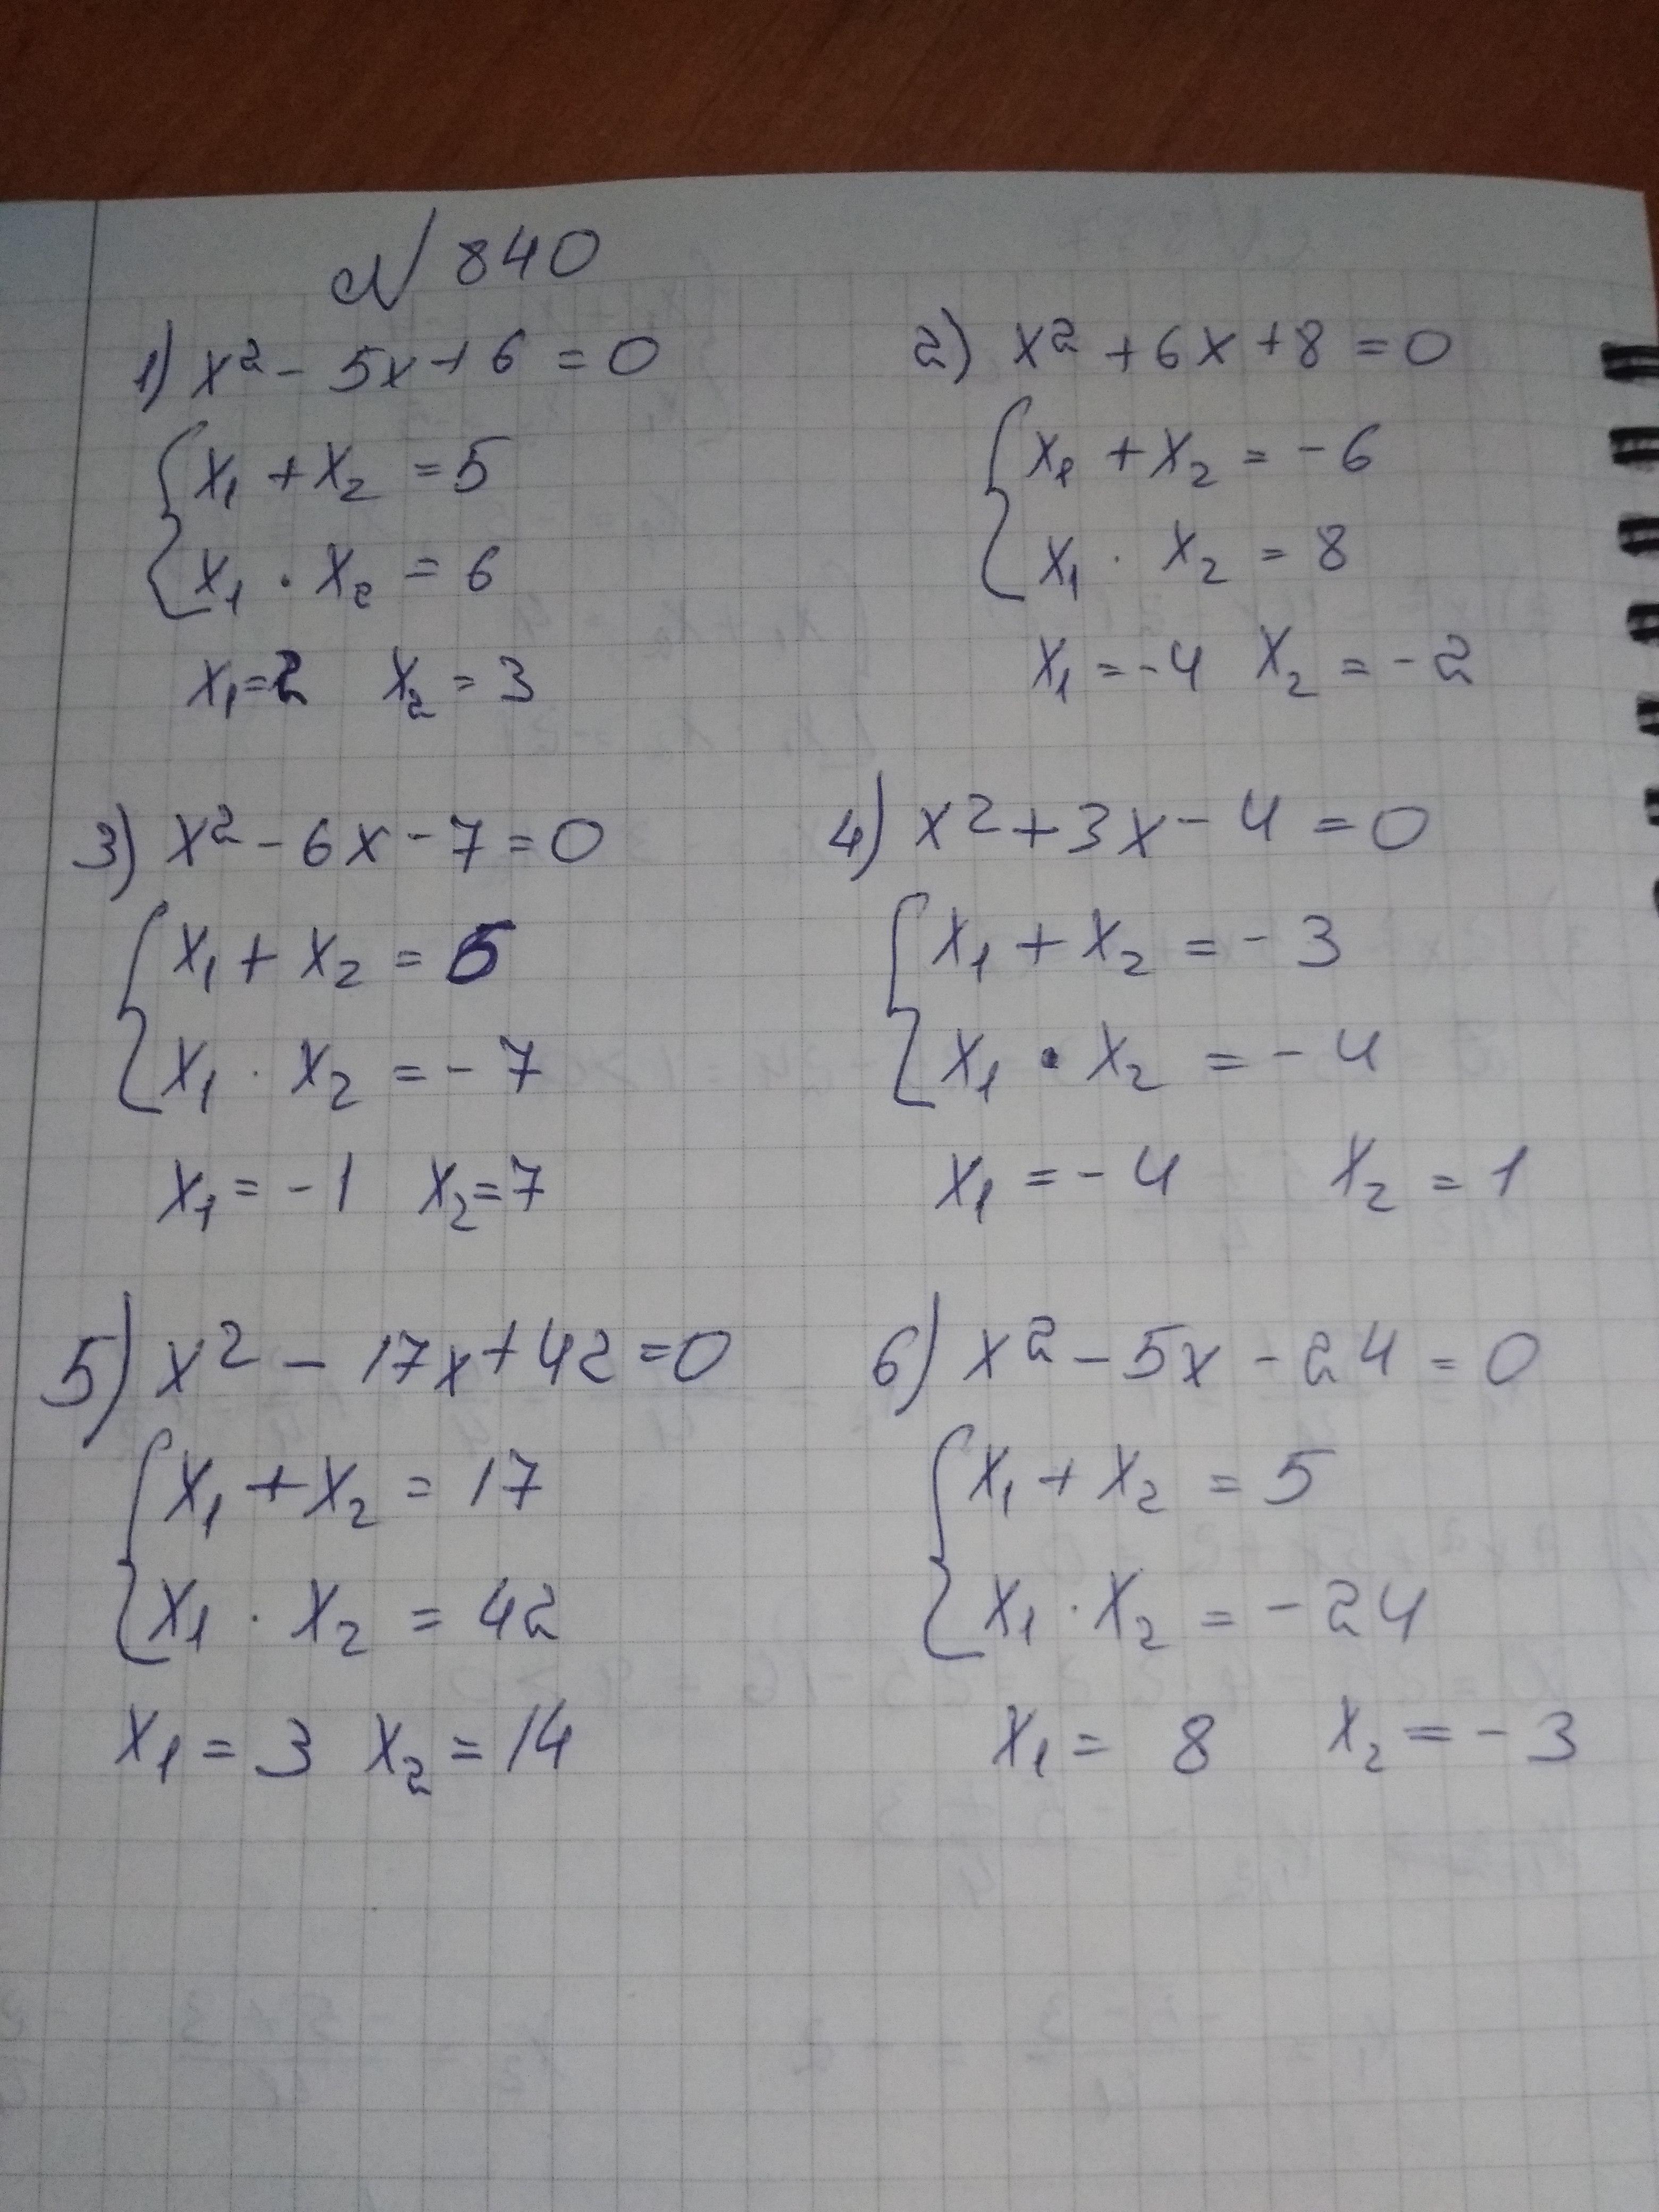 № 840
1) x² - 5x + 6 = 0
x₁ + x₂ = 5
x₁ · x₂ = 6
x₁ = 2 x₂ = 3
2) x² + 6x + 8 = 0
x₁ + x₂ = - 6
x₁ · x₂ = 8
x₁ = - 4 x₂ = - 2
3) x² - 6x - 7 = 0
x₁ + x₂ = 6
x₁ · x₂ = - 7
x₁ = - 1 x₂ = 7
4) x² + 3x - 4 = 0
x₁ + x₂ = - 3
x₁ · x₂ = - 4
x₁ = - 4 x₂ = 1
5) x² - 17x + 42 = 0
x₁ + x₂ = 17
x₁ · x₂ = 42
x₁ = 3 x₂ = 14
6) x² - 5x - 24 = 0
x₁ + x₂ = 5
x₁ · x₂ = - 24
x₁ = 8 x₂ = - 3